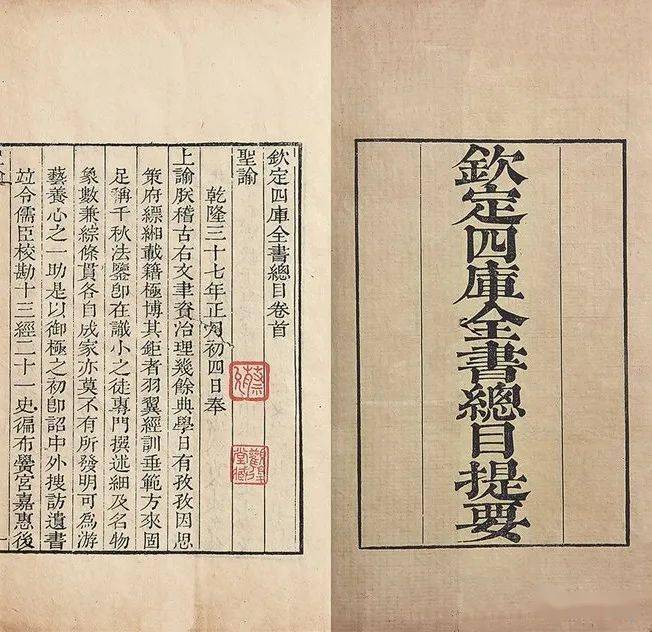 欽定四庫全書總目提要
欽定四庫全書總目卷首
聖諭
乾隆三十七年正月初四日奉
上諭朕稽古右文聿資治理幾餘典學日有孜孜因思
策府縹緗載籍極博其鉅者羽翼經訓垂範方來固
足稱千秋法鑒卽在識小之徒專門撰述細及名物
象數兼綜條貫各自成家亦莫不有所發明可爲游
藝養心之一助是以御極之初卽詔中外搜訪遺書
竝令儒臣校勘十三經二十一史徧布黌宮嘉惠後